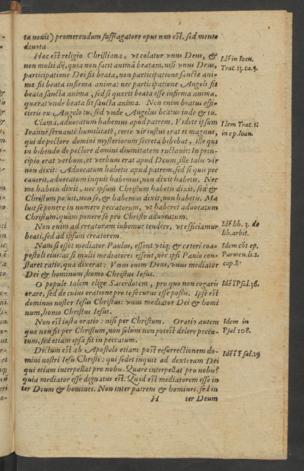 ta nouit) promerendum suffragatore opus non est, sed mente
deuota.
Hæc est religio Christiana, vt colatur vnus Deus, &
non multi dij, quia non facit animã beatam, nisi vnus Deus,
participatione Dei fit beata, non participatione sanctæ ani-
mæ fit beata infirma anima: nec participatione Angeli fit
beata sancta anima, sed si quærit beata esse infirma anima,
quærat vnde beata sit sancta anima. Non enim beatus effi-
ceris ex Angelo tu; sed vnde Angelus beatus inde & tu.
Clama, aduocatum habemus apud patrem. Videte ipsum
Ioannē seruantē humilitatē, certe vir iustus erat et magnus,
qui de pectore domini mysteriorum secreta bibebat, ille qui
bibendo de pectore domini diuinitatem ructauit: in prin-
cipio erat verbum, et verbum erat apud Deum, ille talis vir
non dixit: Aduocatum habetis apud patrem, sed si quis pec-
cauerit, aduocatum inquit habemus, non dixit habetis. Nec
me habetis dixit, nec ipsum Christum habetis dixit, sed &
Christum posuit, non se, & habemus dixit, non habetis. Ma-
luit se ponere in numero peccatorum, vt haberet aduocatum
Christum, quàm ponere se pro Christo aduocatum.
Non enim ad creaturam iubemur tendere, vt efficiamur
beati, sed ad ipsum creatorem.
Nam si esset mediator Paulus, essent vtiq; et cæteri coa-
postoli eius, ac si multi mediatores essent, nec ipsi Paulo con-
staret ratio, qua dixerat: Vnus enim Deus, vnus mediator
Dei & hominum, homo Christus Iesus.
O populе talem elige Sacerdotem, pro quo non cogaris
orare, sed de cuius oratione pro te securus esse possis. Ipse est
dominus noster Iesus Christus: vnus mediator Dei & homi-
num, homo Christus Iesus.
Non est iusta oratio: nisi per Christum. Oratio autem
quæ non fit per Christum, non solum non potest delere pecca-
tum, sed etiam ipsa fit in peccatum.
Dictum est ab Apostolo etiam post resurrectionem do-
mini nostri Iesu Christi: qui sedet inquit ad dexteram Dei
qui etiam interpellat pro nobis. Quare interpellat pro nobis?
quia mediator esse dignatus est. Quid est mediatorem esse in-
ter Deum & homines. Non inter patrem & homines, sed in
H ter Deum
Idē in Ioan.
Tract. 23. ca. 5.
Idem Tract. 1.
in ep. Ioan.
Idem cōt. ep.
Parmen. li. 2.
cap. 8.
Idē ī Psal. 36.
Idem in
Psal. 108.